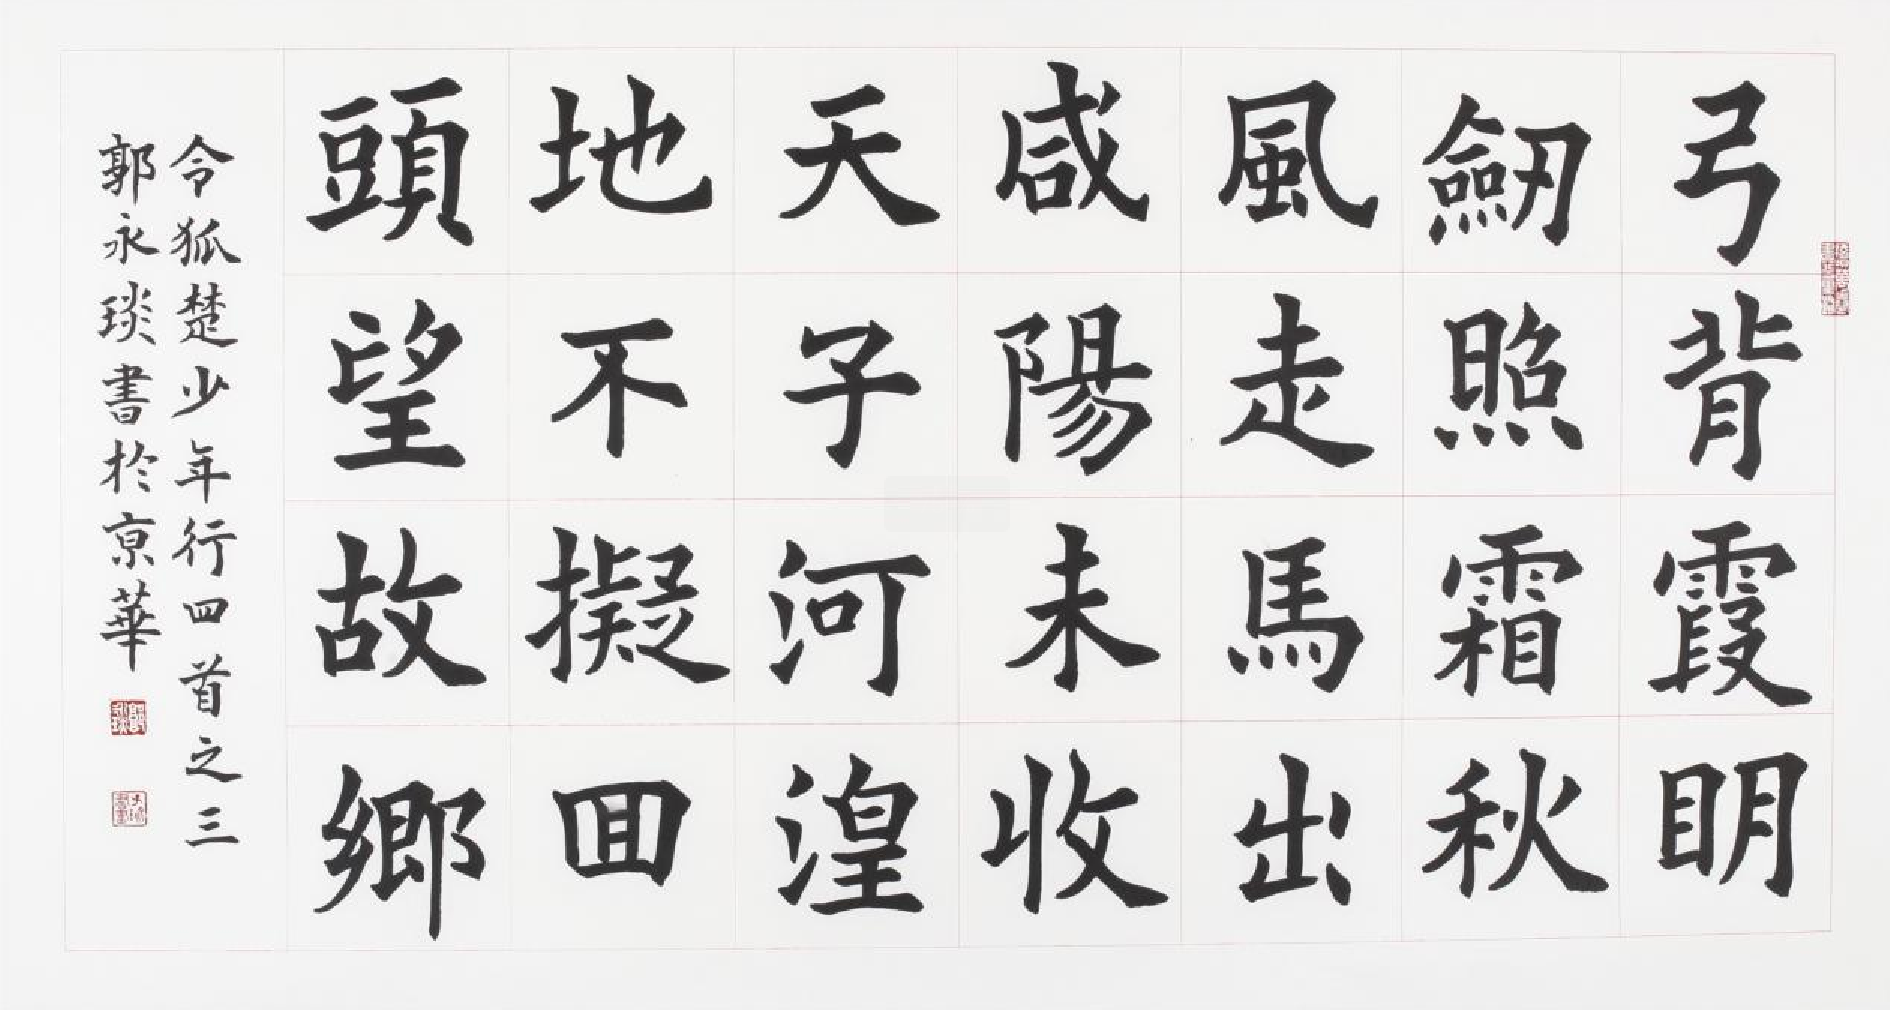 弓背霞明
劒照霜秋
風走馬出
咸陽未收
天子河湟
地不擬回
頭望故鄉
令狐楚少年行四首之三
郭永琰書於京華